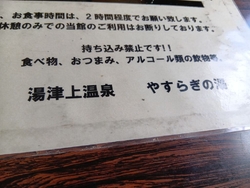 、お食事時間は、2時間程度でお願い致します。
休憩のみでの当館のご利用はお断りしております。
持ち込み禁止です!!
食べ物、おつまみ、アルコール類の飲物等、
湯津上温泉 やすらぎの湯